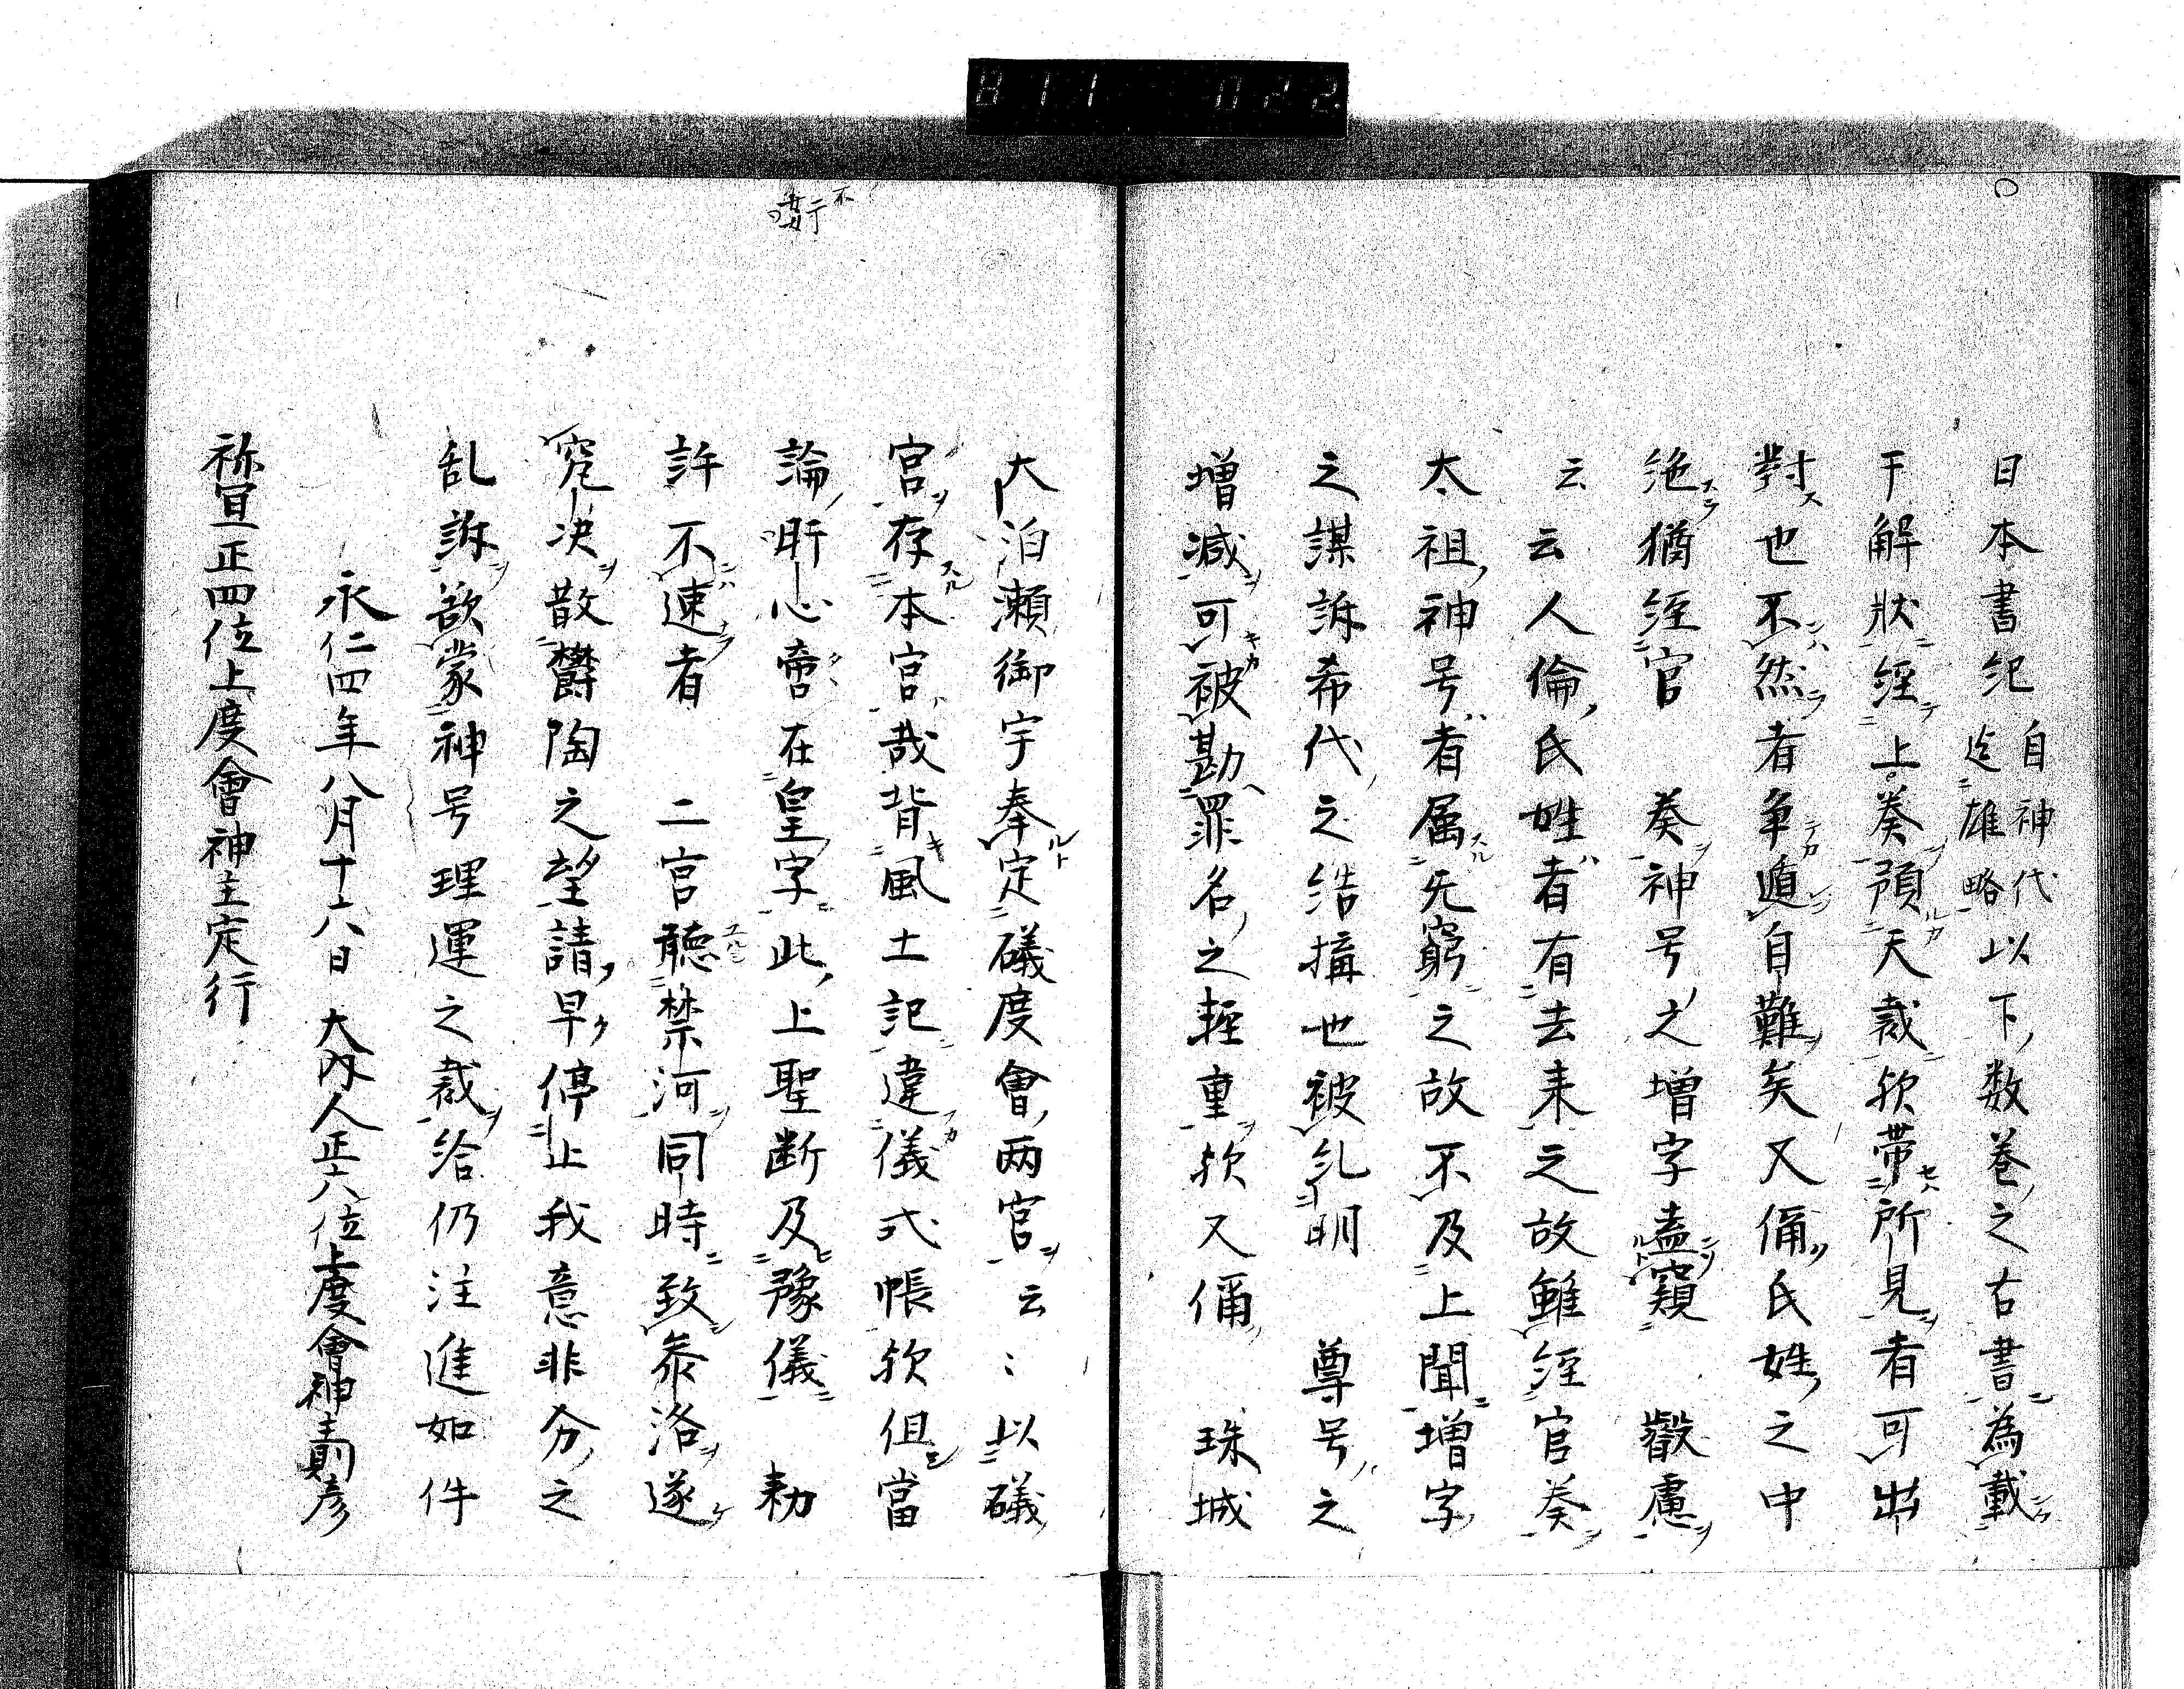 811 022
日本書紀自神代迄雄略以下数巻之古書為載
于解状経上奏預天裁欤帯所見者可出
對也不然者争遁自難矣又偁氏姓之中
絶猶経官 奏神号之増字盍窺 叡慮
云云人倫氏姓者有去来之故雖経官奏
太祖神号者属无窮之故不及上聞増字
之謀訴希代之結搆也被糺明 尊号之
増減可被勘罪名之軽重欤又偁 珠城
大泊瀬御宇奉定礒度會両宮云〻以礒
宮存本宮哉背風土記違儀式帳欤但當
論肝心啻在皇字此上聖断及豫儀 勅
許不速者 二宮聴禁河同時致参洛遂
究决散欝陶之望請早停止我意非分之
乱訴欲蒙神号理運之裁給仍注進如件
永仁四年八月十六日 大内人正六位上度會神主則彦
祢冝正四位上度會神主定行